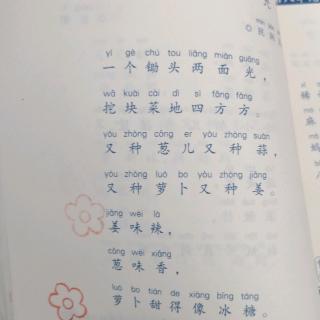 yí gè chú tou liǎng miàn guāng
一个锄头两面光，
wā kuài cài dì sì fāng fāng
挖块菜地四方方。
yòu zhòng cōng er yòu zhòng suàn
又种葱儿又种蒜，
yòu zhòng luó bo yòu zhòng jiāng
又种萝卜又种姜。
jiāng wèi là
姜味辣，
cōng wèi xiāng
葱味香，
luó bo tián de xiàng bīng táng
萝卜甜得像冰糖。